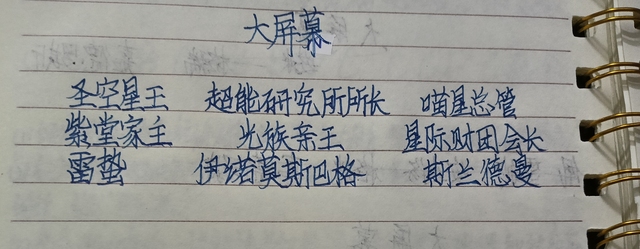 大屏幕
圣空星王 超能研究所所长 喵星总管
紫堂家主 光族亲王 星际财团会长
雷蛰 伊诺莫斯巴格 斯兰德曼